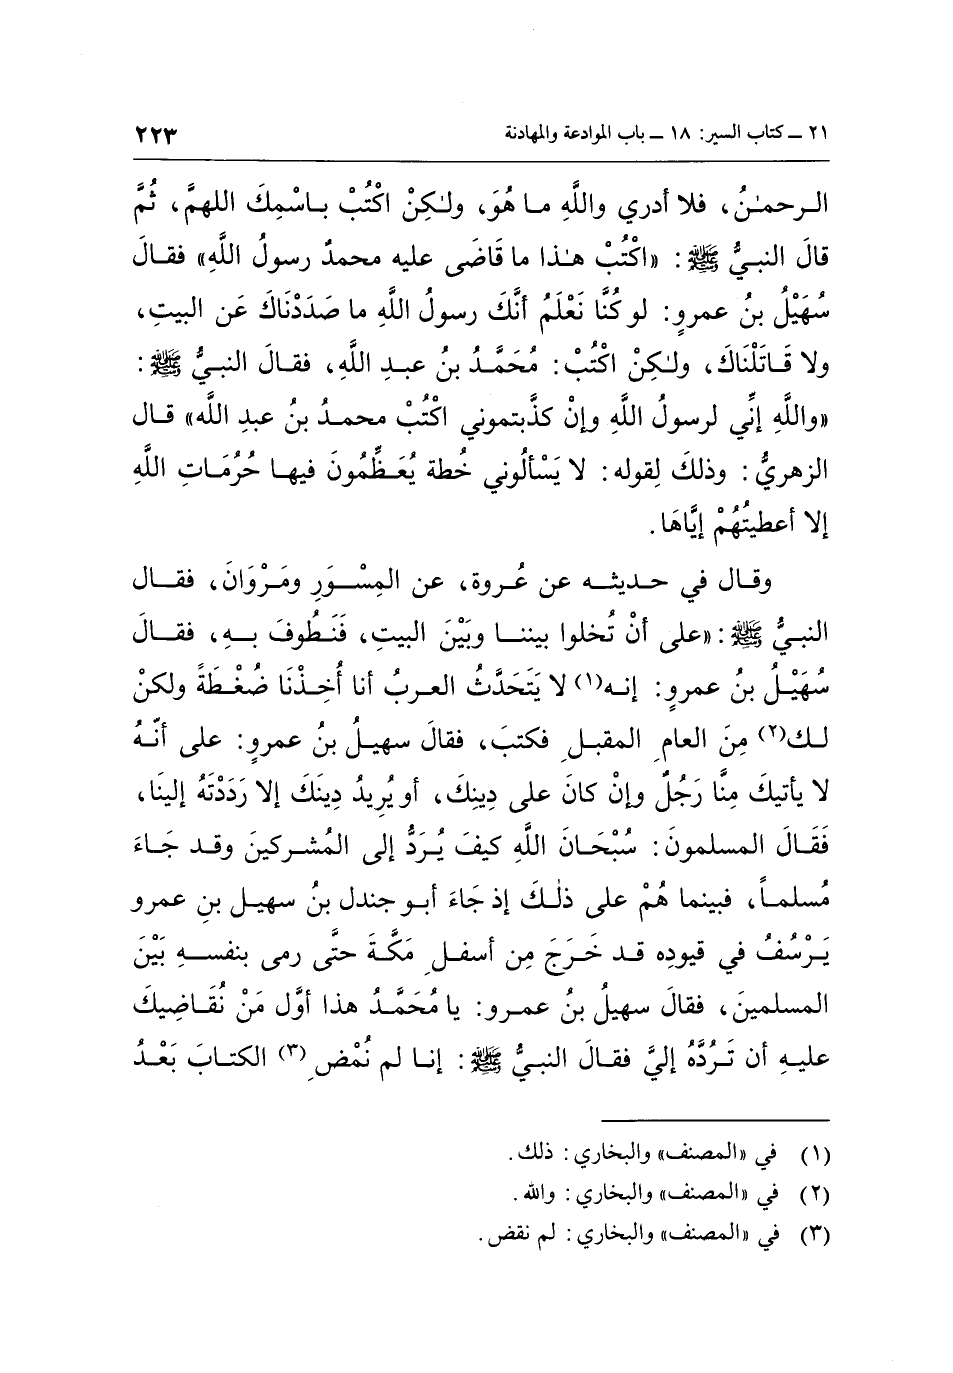 ٢١ ـ كتاب السير: ١٨ ـ باب الموادعة والمهادنة ٢٢٣
الـرحمـٰنُ، فلا أدري واللَّهِ مـا هُوَ، ولـٰكِنْ اكْتُبْ بـاسْمِكَ اللهمَّ، ثُمَّ
قالَ النبـيُّ ﷺ: «اكْتُبْ هـٰذا ما قَاضَى عليه محمدٌ رسولُ اللَّهِ» فقـالَ
سُهَيْلُ بنُ عمروٍ: لو كُنَّا نَعْلَمُ أنَّكَ رسولُ اللَّهِ ما صَدَدْنَاكَ عَنِ البيتِ،
ولا قَـاتَلْنَاكَ، ولـٰكِنْ اكْتُبْ: مُحَمَّـدُ بنُ عبـدِ اللَّهِ، فقـالَ النبـيُّ ﷺ:
«واللَّهِ إنِّي لرسولُ اللَّهِ وإنْ كذَّبتموني اكْتُبْ محمـدُ بنُ عبدِ اللَّه» قـال
الزهريُّ: وذلكَ لِقوله: لا يَسْألُوني خُطة يُعَـظِّمُونَ فيهـا حُرُمَـاتِ اللَّهِ
إلا أعطيتُهُمْ إيَّاهَا.
وقـال في حـديثـه عن عُـروة، عن المِسْـوَرِ ومَـرْوَانَ، فقـال
النبـيُّ ﷺ: «على أنْ تُخلوا بيننـا وبَيْنَ البيتِ، فَنَطُوفَ بـهِ، فقـالَ
سُهَيْـلُ بنُ عمروٍ: إنـه(١) لا يَتَحَدَّثُ العـربُ أنا أُخِـذْنَا ضُغْـطَةً ولكنْ
لـك(٢) مِنَ العامِ المقبـلِ فكتبَ، فقالَ سهيـلُ بنُ عمروٍ: على أنَّـهُ
لا يأتيكَ مِنَّا رَجُلٌ وإنْ كانَ على دِينِكَ، أو يُرِيدُ دِينَكَ إلا رَدَدْتَهُ إلينَا،
فَقَـالَ المسلمونَ: سُبْحَـانَ اللَّهِ كيفَ يُـرَدُّ إلى المُشـركينَ وقـد جَـاءَ
مُسلمـاً، فبينما هُمْ على ذٰلـكَ إذ جَاءَ أبـو جندل بنُ سهيـل بنِ عمرو
يَـرْسُفُ في قيودِه قـد خَـرَجَ مِن أسفـلِ مَكَّـةَ حتَّى رمى بنفسـهِ بَيْنَ
المسلمينَ، فقالَ سهيلُ بنُ عمـرو: يا مُحَمَّـدُ هذا أوَّل مَنْ نُقَـاضِيكَ
عليـهِ أن تَـرُدَّهُ إليَّ فقـالَ النبـيُّ ﷺ: إنـا لم نُمْضِ(٣) الكتـابَ بَعْـدُ
(١) في «المصنف» والبخاري: ذلك.
(٢) في «المصنف» والبخاري: والله.
(٣) في «المصنف» والبخاري: لم نقض.